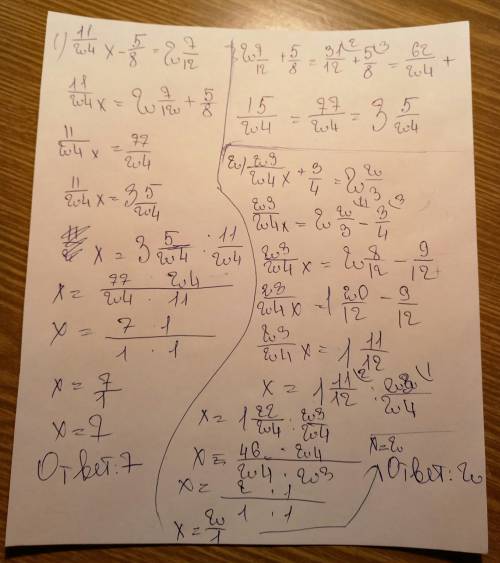 1) 11/24 x - 5/8 = 2 7/12
11/24 x = 2 7/12 + 5/8
11/24 x = 77/24
11/24 x = 3 5/24
x = 3 5/24 : 11/24
x = 77 · 24 / 24 · 11
x = 7 · 1 / 1 · 1
x = 7/1
x = 7
Ответ: 7
2 7/12 + 5/8 = 31/12 + 5/8 = 62/24 +
15/24 = 77/24 = 3 5/24
2) 23/24 x + 3/4 = 2 2/3
23/24 x = 2 2/3 - 3/4
23/24 x = 2 8/12 - 9/12
23/24 x = 1 20/12 - 9/12
23/24 x = 1 11/12
x = 1 11/12 : 23/24
x = 1 22/24 : 23/24
x = 46 · 24 / 24 · 23
x = 2 · 1 / 1 · 1
x = 2/1
x = 2
Ответ: 2